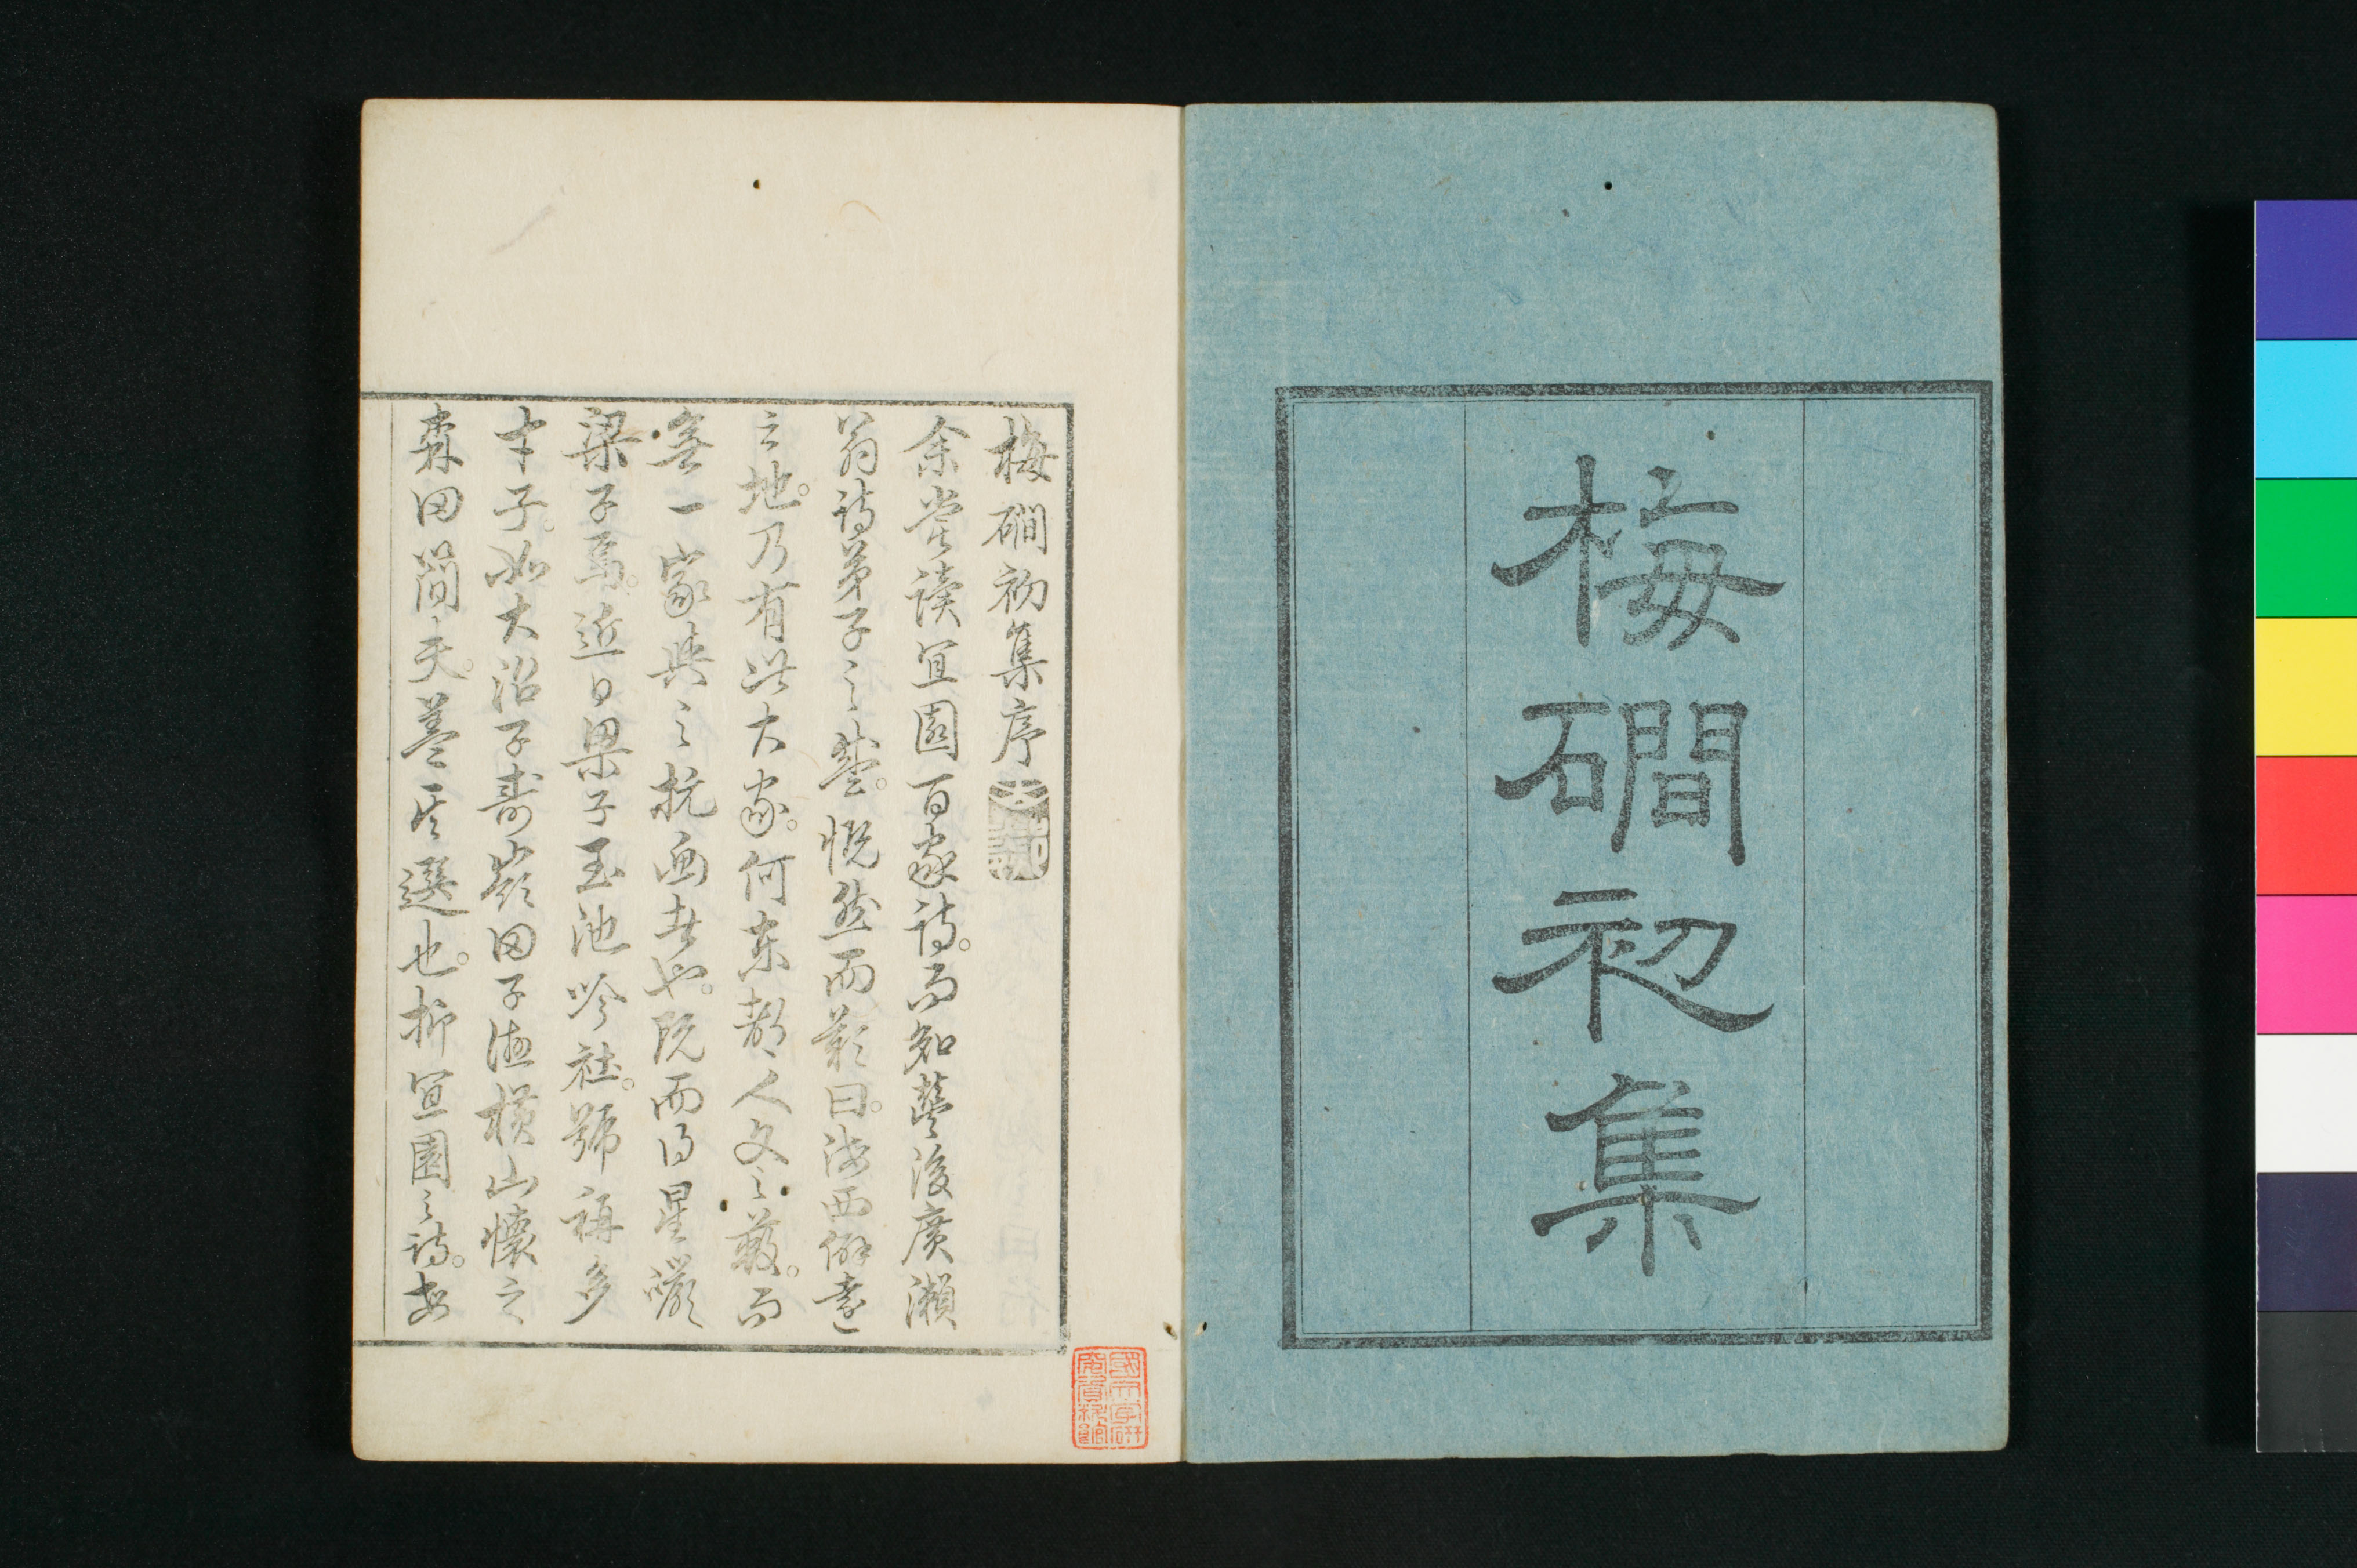 梅磵初集
梅磵初集序
余嘗讀宜園百家詩。而知豊後廣瀨
翁詩弟子之盛。慨然而歎曰。海西僻遠
之地。乃有此大家。何東都人文之藪。而
無一家與之抗衡者也。既而得星巖
梁子焉。近日梁子玉池吟社。號稱多
才子。如大沼子壽嶺田子德橫山懷之
森田簡夫。蓋其選也。抑宜園之詩。如